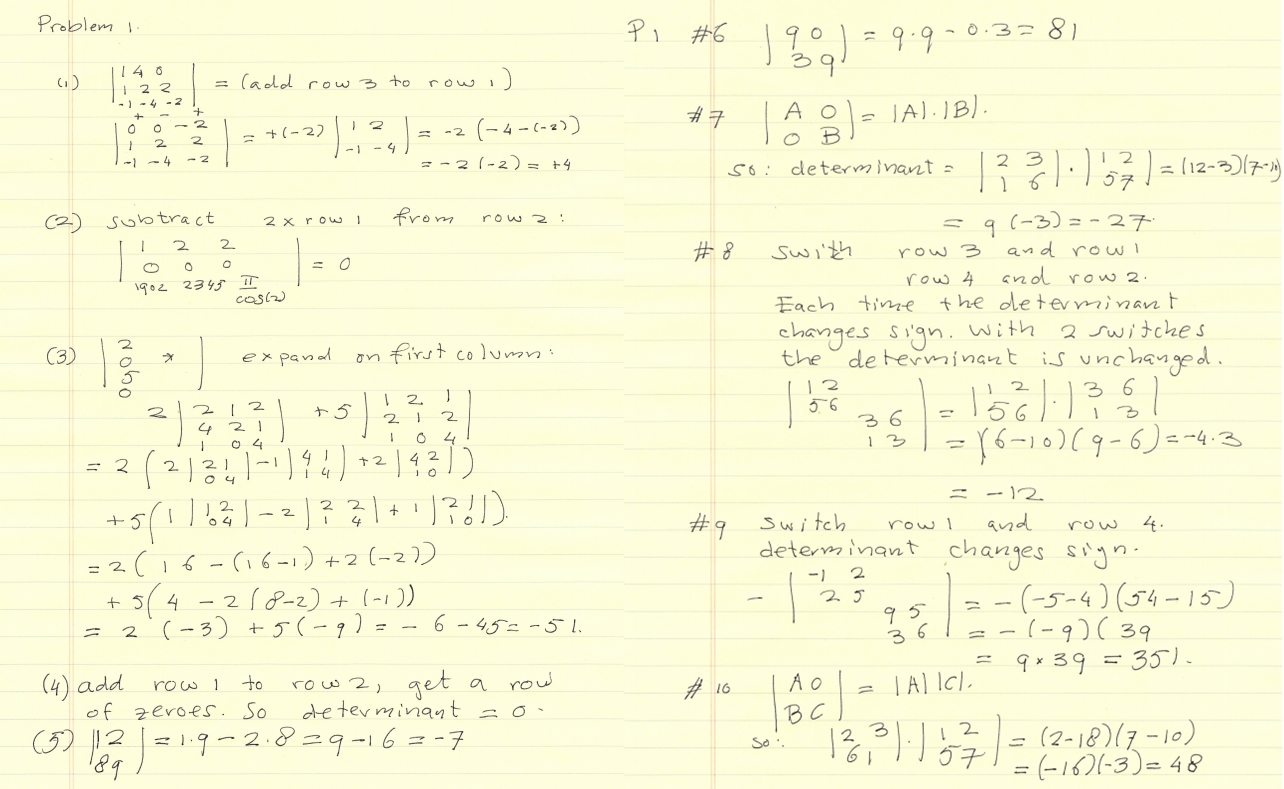 Problem 1.
(1) | 1 4 0 | = (add row 3 to row 1)
| 1 2 2 |
| -1 -4 -2 |
+ - +
| 0 0 -2 |
| 1 2 2 | = +(-2) | 1 2 | = -2 (-4-(-2))
| -1 -4 -2 | | -1 -4 | = -2(-2) = +4
(2) subtract 2 x row 1 from row 2:
| 1 2 2 |
| 0 0 0 | = 0
| 1902 2345 π/cos(2) |
(3) | 2 0 5 0 * | expand on first column:
2 | 2 1 2 | + 5 | 1 2 1 |
| 4 2 1 | | 2 1 2 |
| 1 0 4 | | 1 0 4 |
= 2 ( 2 | 2 1 | -1 | 4 1 | +2 | 4 2 | )
| 0 4 | | 1 4 | | 1 0 |
+5 ( 1 | 1 2 | - 2 | 2 2 | + 1 | 2 1 | ).
| 0 4 | | 1 4 | | 1 0 |
= 2 ( 16 - (16-1) + 2(-2))
+ 5( 4 - 2(8-2) + (-1))
= 2 (-3) + 5(-9) = - 6 - 45 = -51.
(4) add row 1 to row 2, get a row
of zeroes. So determinant = 0.
(5) | 1 2 | = 1.9 - 2.8 = 9-16 = -7
| 8 9 |
P1 #6 | 9 0 | = 9.9 - 0.3 = 81
| 3 9 |
#7 | A 0 | = |A|.|B|.
| 0 B |
so: determinant = | 2 3 | . | 1 2 | = (12-3)(7-10)
| 1 6 | | 5 7 |
= 9 (-3) = -27.
#8 swith row 3 and row 1
row 4 and row 2.
Each time the determinant
changes sign. With 2 switches
the determinant is unchanged.
| 1 2 |
| 5 6 | = | 1 2 | . | 3 6 |
| 3 6 | | 5 6 | | 1 3 |
| 1 3 | = (6-10)(9-6) = -4.3
= -12
#9 switch row 1 and row 4.
determinant changes sign.
- | -1 2 |
| 2 5 |
| 9 5 | = - (-5-4)(54-15)
| 3 6 | = - (-9)( 39
= 9 x 39 = 351.
#10 | A 0 | = |A||C|.
| B C |
so: | 2 3 | . | 1 2 | = (2-18)(7-10)
| 6 1 | | 5 7 | = (-16)(-3) = 48